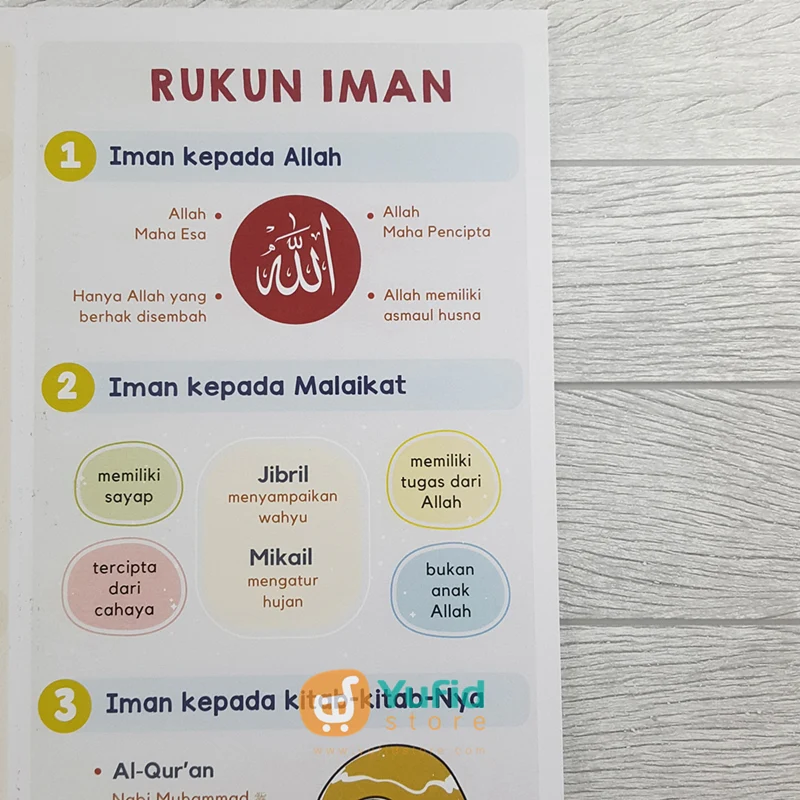 RUKUN IMAN
1 Iman kepada Allah
Allah
Maha Esa
Hanya Allah yang
berhak disembah
الله
Allah
Maha Pencipta
Allah memiliki
asmaul husna
2 Iman kepada Malaikat
memiliki
sayap
tercipta
dari
cahaya
Jibril
menyampaikan
wahyu
Mikail
mengatur
hujan
memiliki
tugas dari
Allah
bukan
anak
Allah
3 Iman kepada kitab-kitab-Nya
Yufid
store
Al-Qur'an
Nabi Muhammad ﷺ